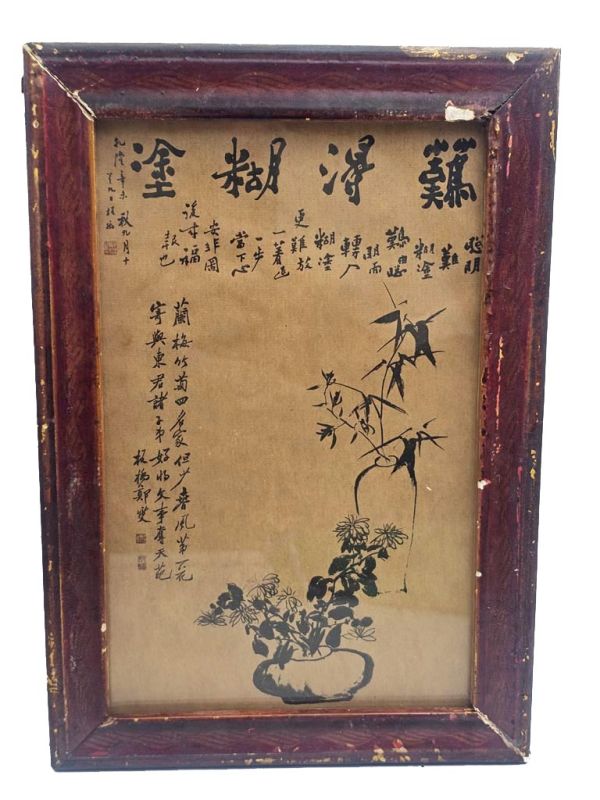 難得糊塗
聰明
難
糊塗
難由聰
明而
轉入
糊塗
更難放
一著退
一步
當下心
安非圖
後來福
報也
乾隆辛未秋九月十
九日板橋
蘭梅竹菊四名家但少春風第一花
寄與東君諸子弟好將文事奪天葩
板橋鄭燮